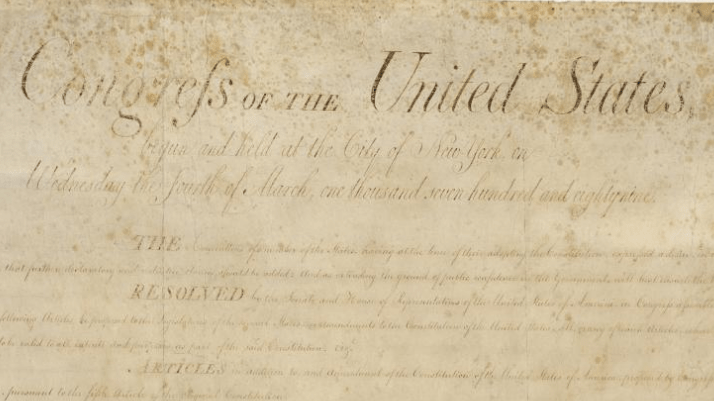 Congreſs OF THE United States,
begun and held at the City of New York, on
Wednesday the fourth of March, one thousand seven hundred and eighty nine.
THE Conventions of a number of the States, having at the time of their adopting the Constitution, expreſsed a desire
that further declaratory and restrictive clauses should be added: And as extending the ground of public confidence in the Government, will best ensure the
RESOLVED by the Senate and House of Representatives of the United States of America, in Congreſs
following Articles be proposed to the Legislatures of the several States, as amendments to the Constitution of the United States, all, or any of which Articles, when
to be valid to all intents and purposes, as part of the said Constitution; viz.
ARTICLES in addition to, and Amendment of the Constitution of the United States of America, proposed by
pursuant to the fifth Article of the original Constitution.